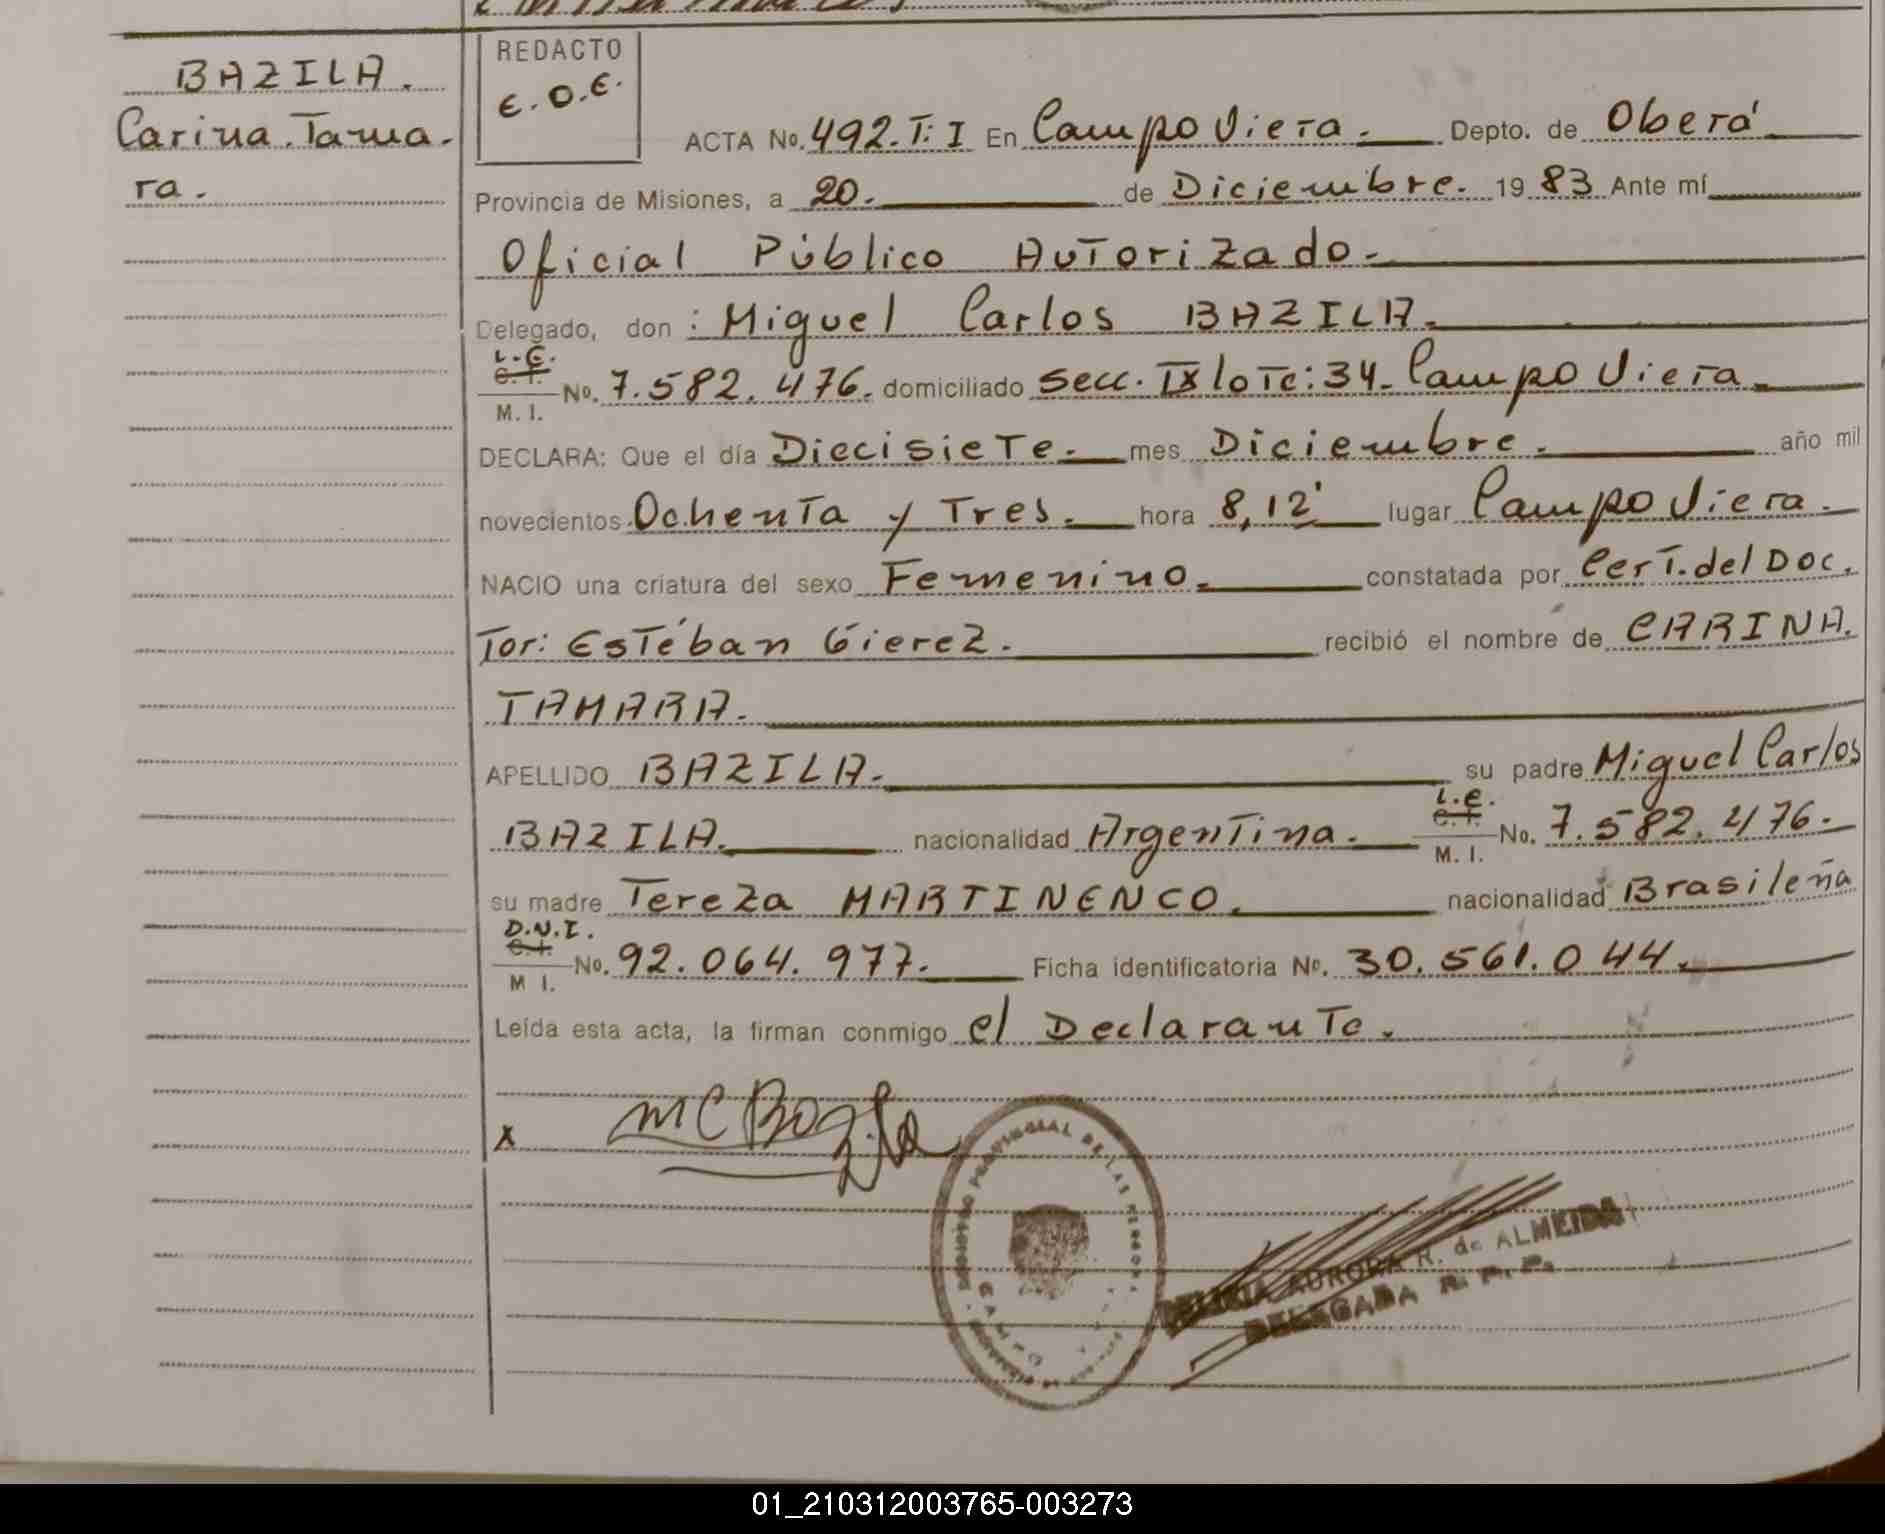 BAZILA.
Carina. Tama-
ra.
REDACTO
E.O.E.
ACTA No. 492. T: I En Campo Viera. Depto. de Oberá
Provincia de Misiones, a 20. de Diciembre. 19 83 Ante mí
Oficial Público Autorizado.
Delegado, don : Miguel Carlos BAZILA.
L.E.
C. I.
M. I.
No. 7.582.476. domiciliado Secc. IX lote: 34. Campo Viera.
DECLARA: Que el día Diecisiete. mes Diciembre. año mil
novecientos Ochenta y Tres. hora 8,12' lugar Campo Viera.
NACIO una criatura del sexo Femenino. constatada por Cert. del Doc.
Tor: Estéban Gierez. recibió el nombre de CARINA.
TAMARA.
APELLIDO BAZILA. su padre Miguel Carlos
BAZILA. nacionalidad Argentina. L.E. C. I. M. I. No. 7.582.476.
su madre Tereza MARTINENCO. nacionalidad Brasileña
D.N.I.
C. I.
M I.
No. 92.064.977. Ficha identificatoria No. 30.561.044.
Leída esta acta, la firman conmigo el Declarante.
x MC Bazila
PROVINCIAL DE LAS
CAMPO
AURORA R. de ALMEIDA
DELEGADA R. P. P.
01_210312003765-003273